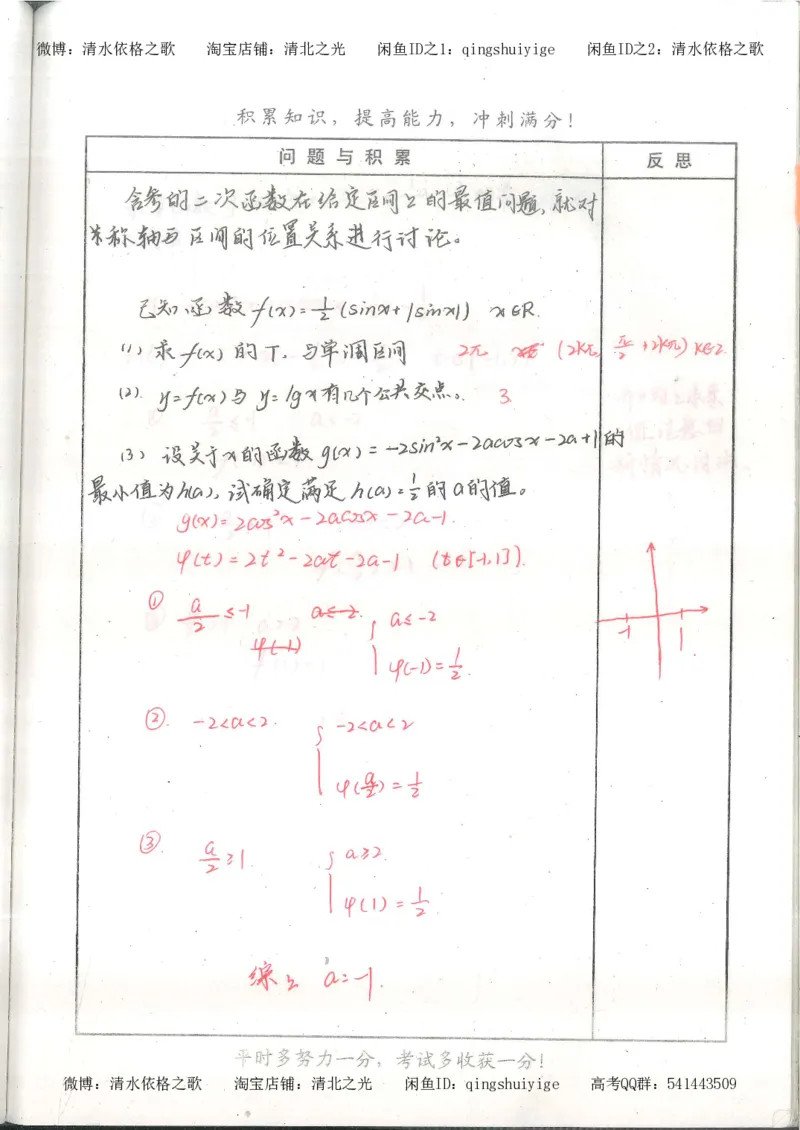 微博：清水依格之歌 淘宝店铺：清北之光 闲鱼ID之1：qingshuiyige 闲鱼ID之2：清水依格之歌
积累知识，提高能力，冲刺满分！
问题与积累 反思
含参的二次函数在给定区间上的最值问题，就对
称轴与区间的位置关系进行讨论。
已知函数 f(x)=1/2(sinx+|sinx|) x∈R.
(1) 求f(x)的T，与单调区间 2π (2kπ, π/2+2kπ) k∈Z.
(2). y=f(x)与 y=lgx有几个公共交点。 3
(3) 设关于x的函数 g(x)=-2sin²x-2acosx-2a+1的
最小值为h(a)，试确定满足 h(a)=1/2的a的值。
g(x)=2cos²x-2acosx-2a-1.
φ(t)=2t²-2at-2a-1 (t∈[-1,1]).
① a/2≤-1 a≤-2. { a≤-2
φ(-1) φ(-1)=1/2.
-1 1
②. -2<a<2. { -2<a<2
φ(a/2)=1/2
③. a/2≥1. { a≥2.
φ(1)=1/2
综上 a=-1.
平时多努力一分，考试多收获一分！
微博：清水依格之歌 淘宝店铺：清北之光 闲鱼ID：qingshuiyige 高考QQ群：541443509